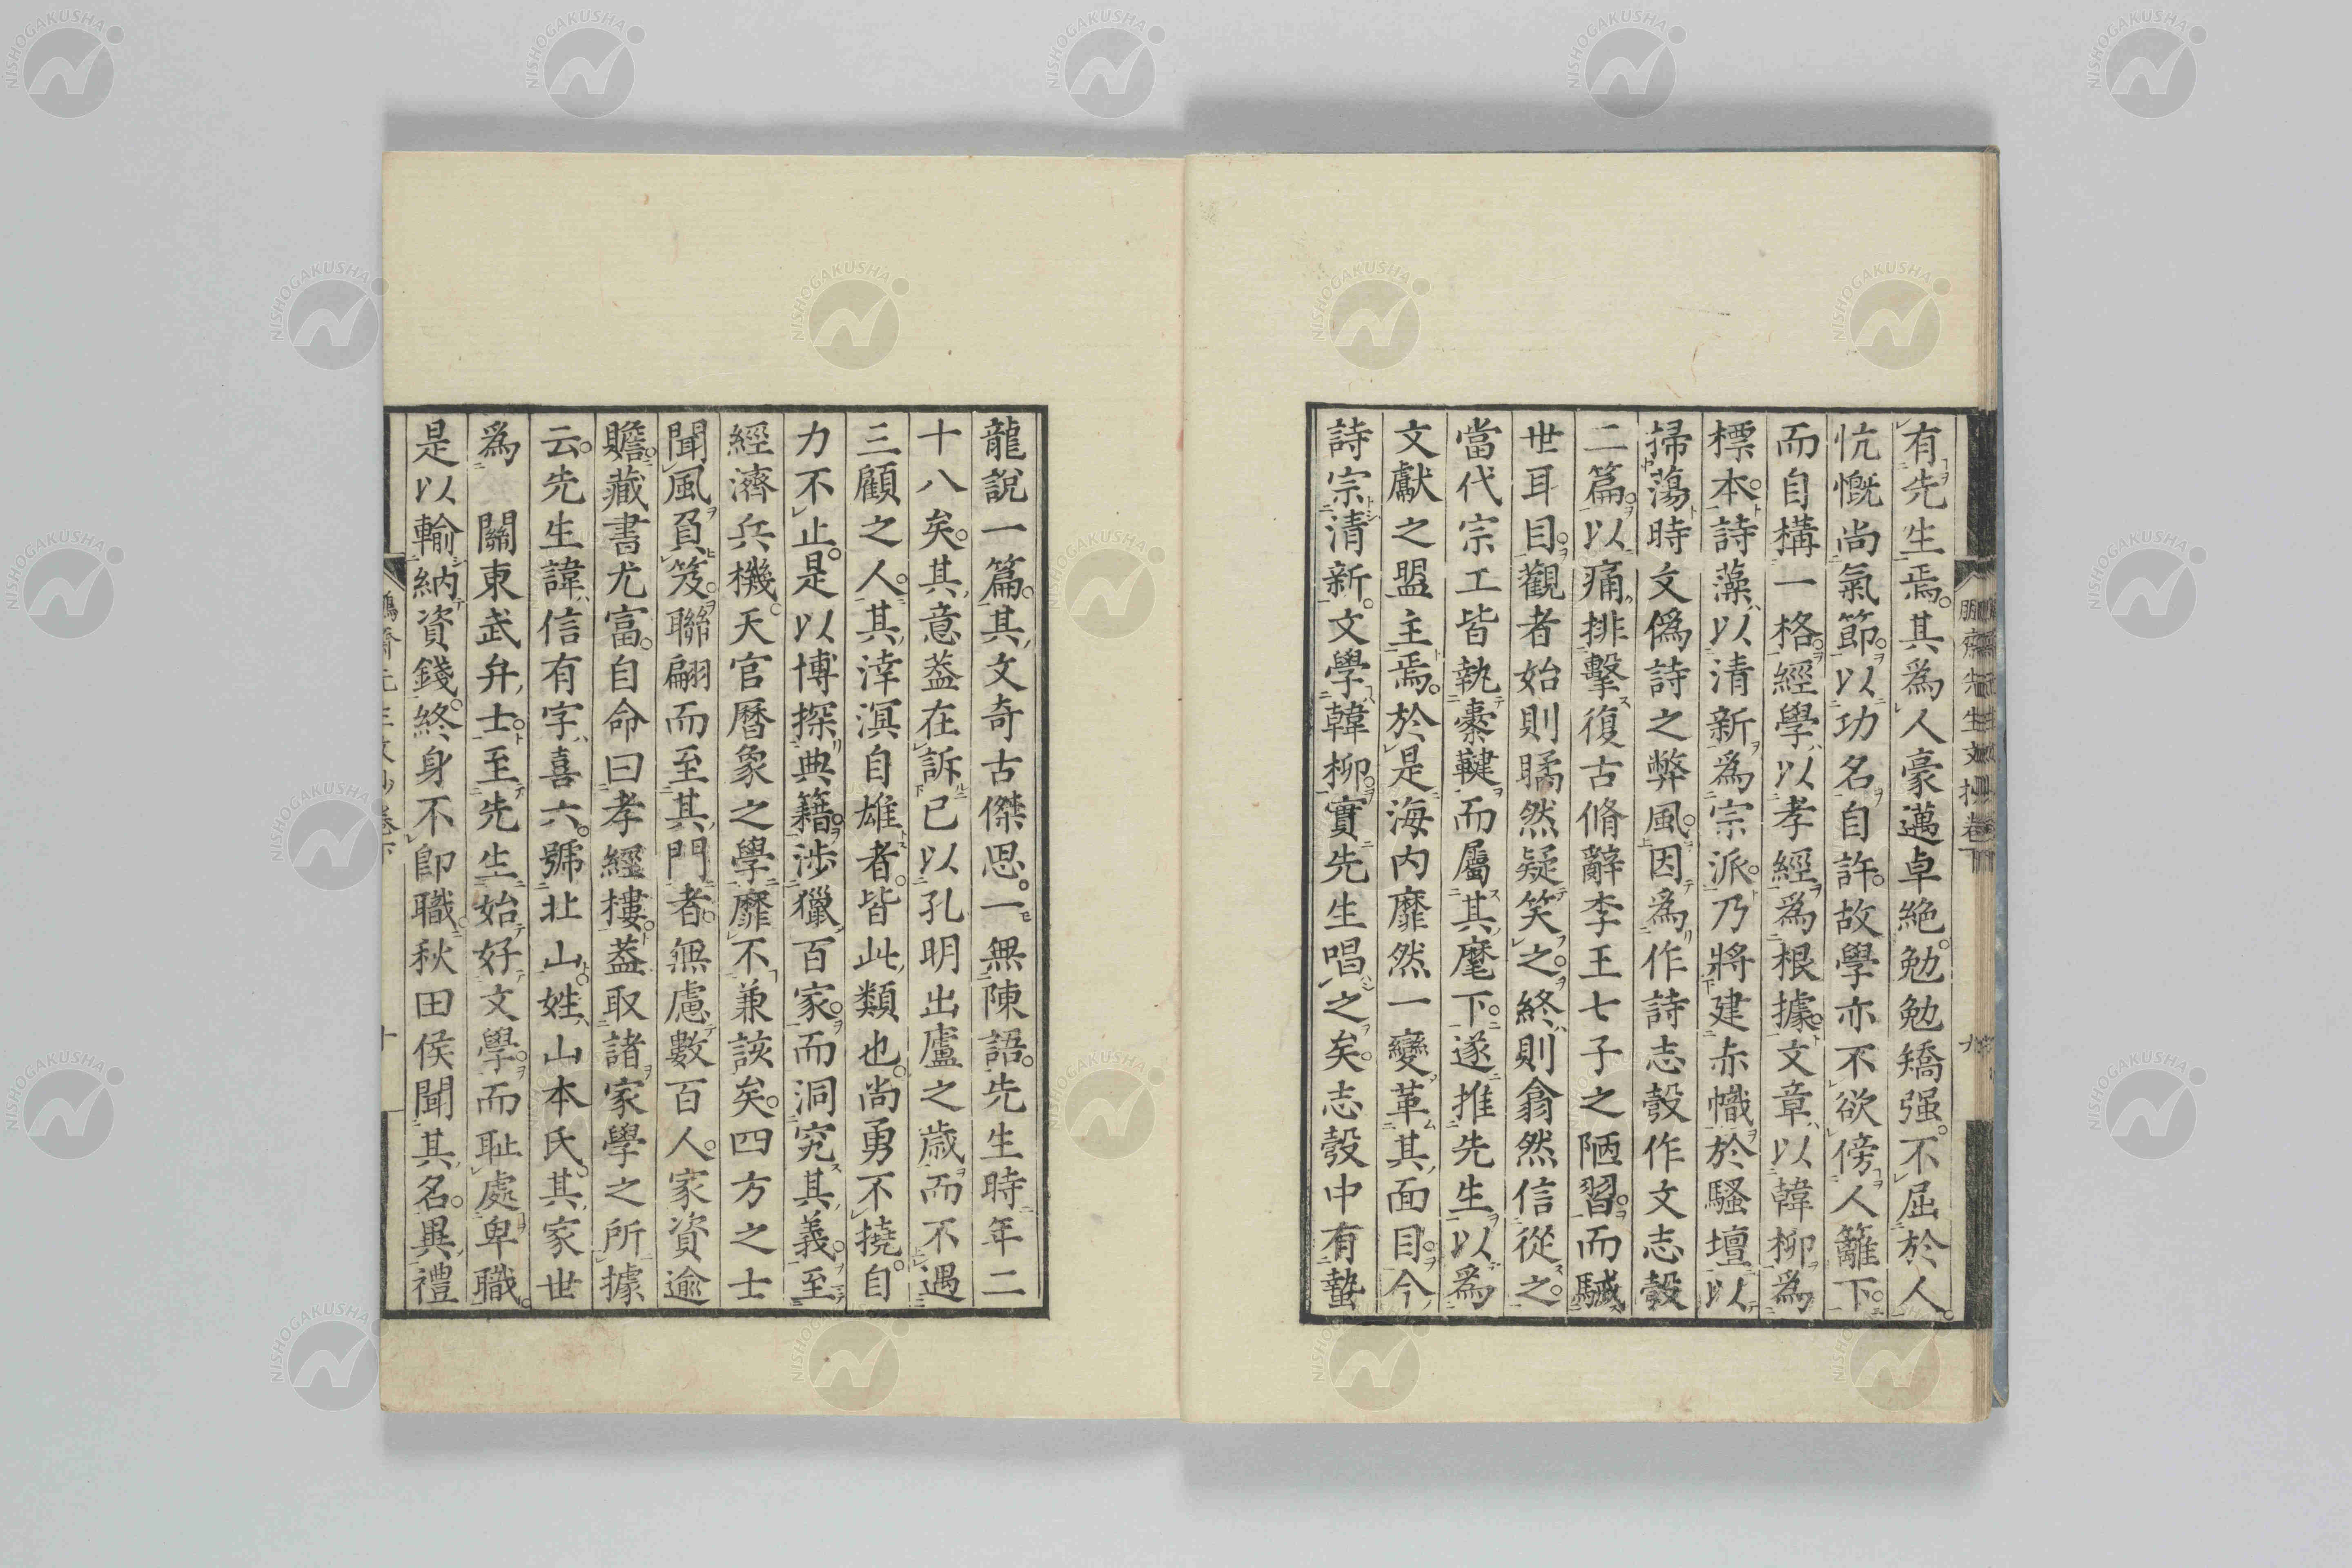 有先生焉。其為人豪邁卓絶。勉勉矯强。不屈於人。
忼慨尚氣節。以功名自許。故學亦不欲傍人籬下。
而自構一格。經學以孝經為根據。文章以韓柳為
標本。詩藻以清新為宗派。乃將建赤幟於騷壇。以
掃蕩時文僞詩之弊風。因為作詩志彀作文志彀
二篇。以痛排擊復古脩辭李王七子之陋習。而駴
世耳目。觀者始則瞲然疑笑之。終則翕然信從之。
當代宗工皆執櫜鞬而屬其麾下。遂推先生以為
文獻之盟主焉。於是海内靡然一變革其面目。今
詩宗清新。文學韓柳。實先生唱之矣。志彀中有蟄
龍說一篇。其文奇古傑思。一無陳語。先生時年二
十八矣。其意蓋在訴已以孔明出廬之歳而不遇
三顧之人。其涬溟自雄者。皆此類也。尚勇不撓。自
力不止。是以博探典籍。涉獵百家。而洞究其義。至
經濟兵機天官曆象之學。靡不兼該矣。四方之士
聞風負笈。聯翩而至其門者。無慮數百人。家資逾
贍。藏書尤富。自命曰孝經樓。蓋取諸家學之所據
云。先生諱信有字喜六。號北山。姓山本氏。其家世
為 關東武弁士。至先生始好文學。而耻處卑職。
是以輸納資錢。終身不卽職。秋田侯聞其名。異禮
NISHOGAKUSHA